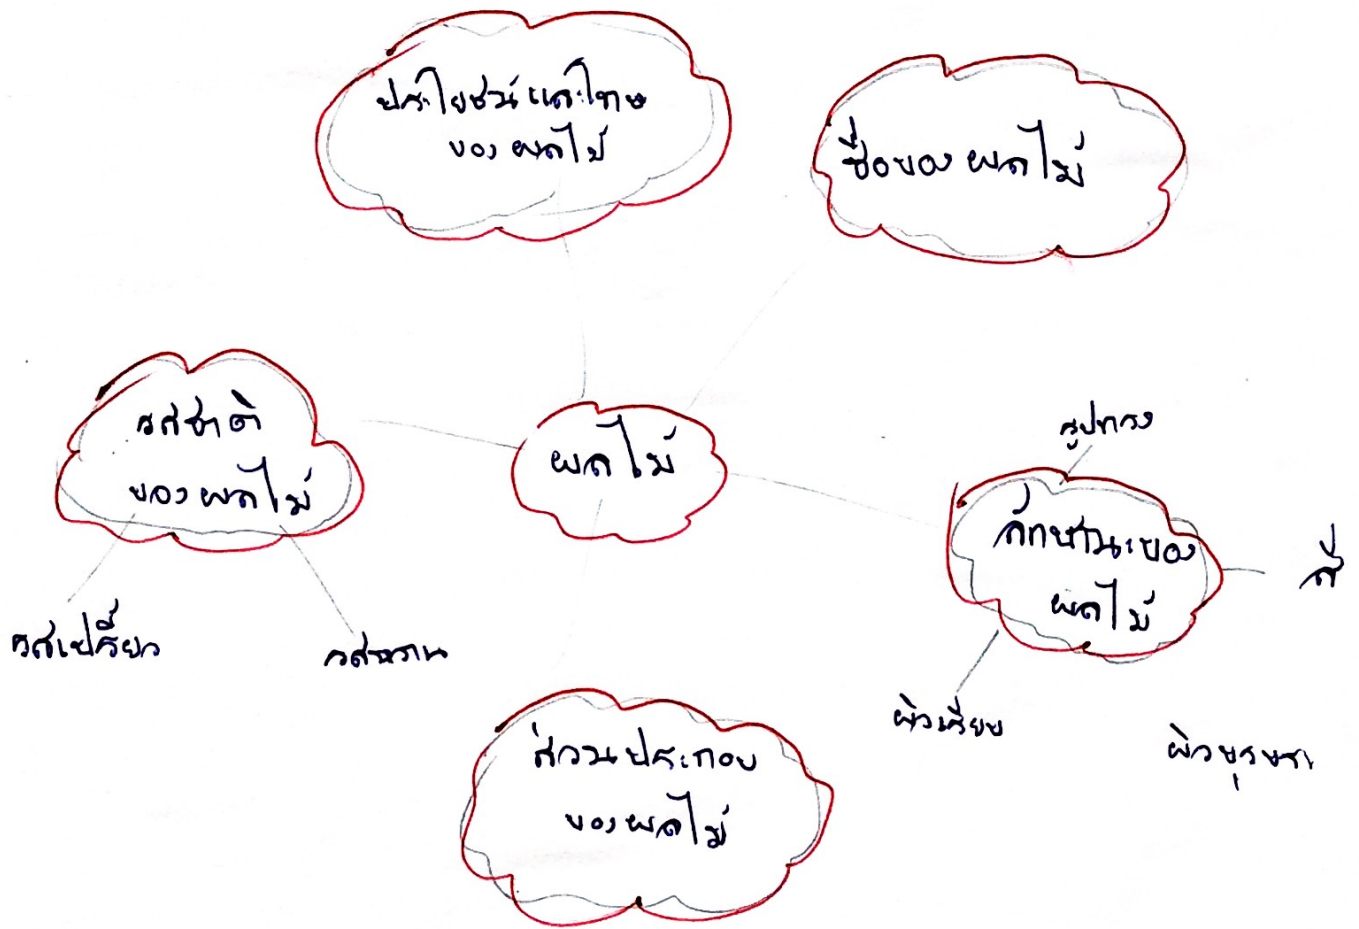 ประโยชน์และโทษ
ของผลไม้
ชื่อของผลไม้
รสชาติ
ของผลไม้
ผลไม้
รูปทรง
ลักษณะของ
ผลไม้
สี
รสเปรี้ยว
รสหวาน
ผิวเรียบ
ผิวขรุขระ
ส่วนประกอบ
ของผลไม้